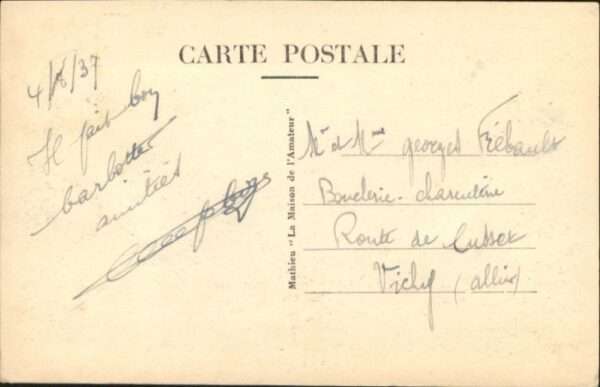 CARTE POSTALE
4/8/37
Il fait bon
barbotter
amitiés
Mathieu "La Maison de l'Amateur"
Mr et Mme georges Trébault
Boucherie - charcuterie
Route de Cusset
Vichy (allier)